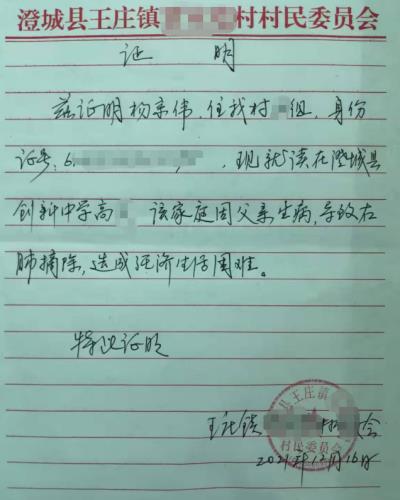 澄城县王庄镇 村村民委员会
证 明
兹证明杨宗伟,住我村 组,身份
证号:6 ,现就读在澄城县
创新中学高 该家庭因父亲生病,导致右
肺摘除,造成经济生活困难。
特此证明
县王庄镇
王庄镇 村 会
村民委员会
2021年12月16日